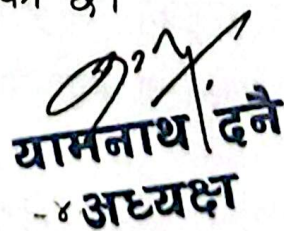 यामनाथ दनै
-४ अध्यक्ष